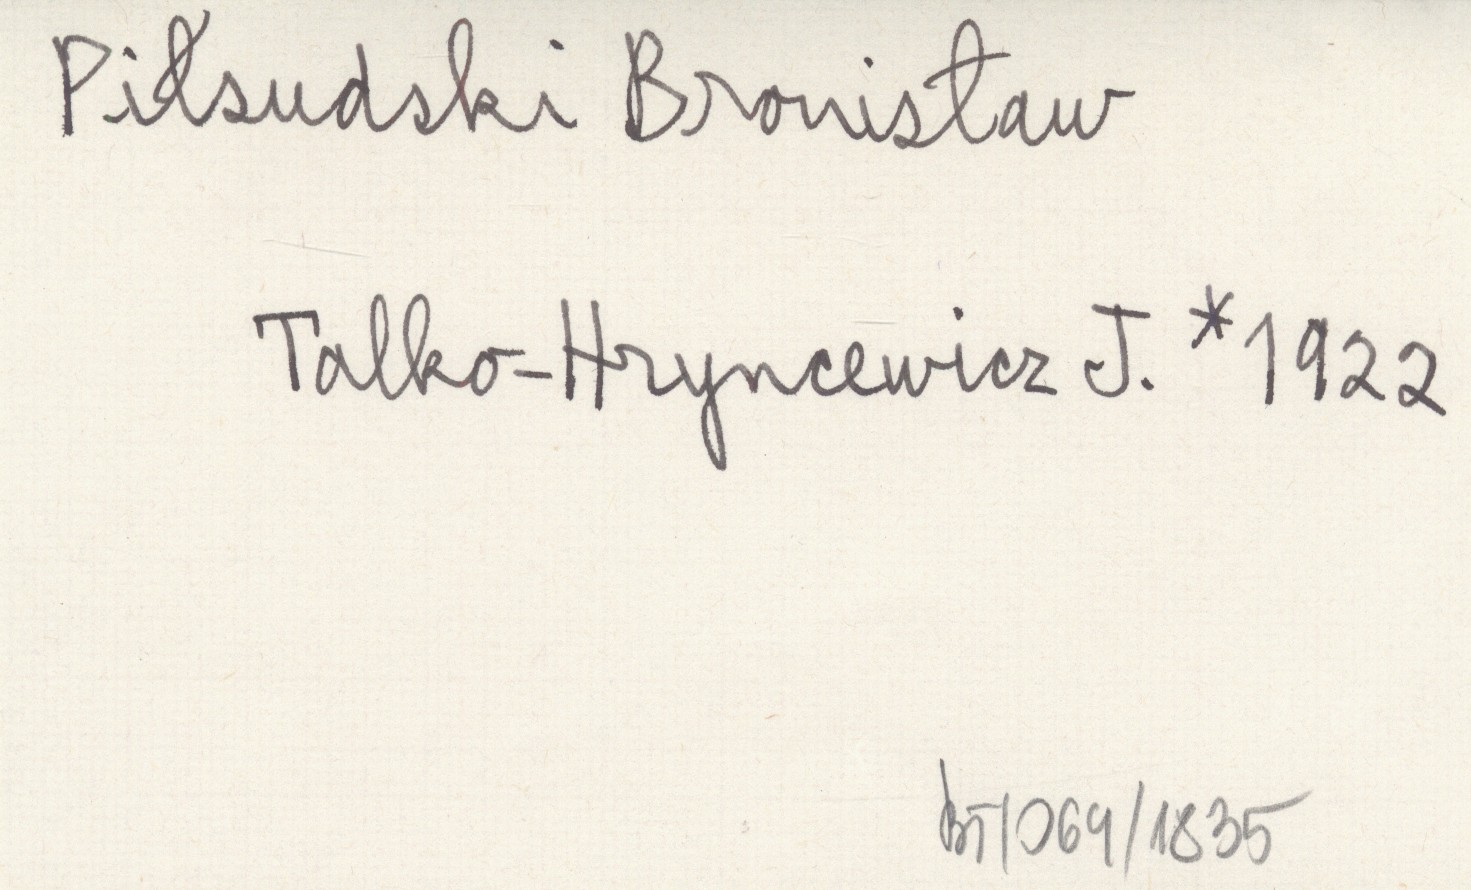 Piłsudski Bronisław
Talko-Hryncewicz J. *1922
BT/069/1835